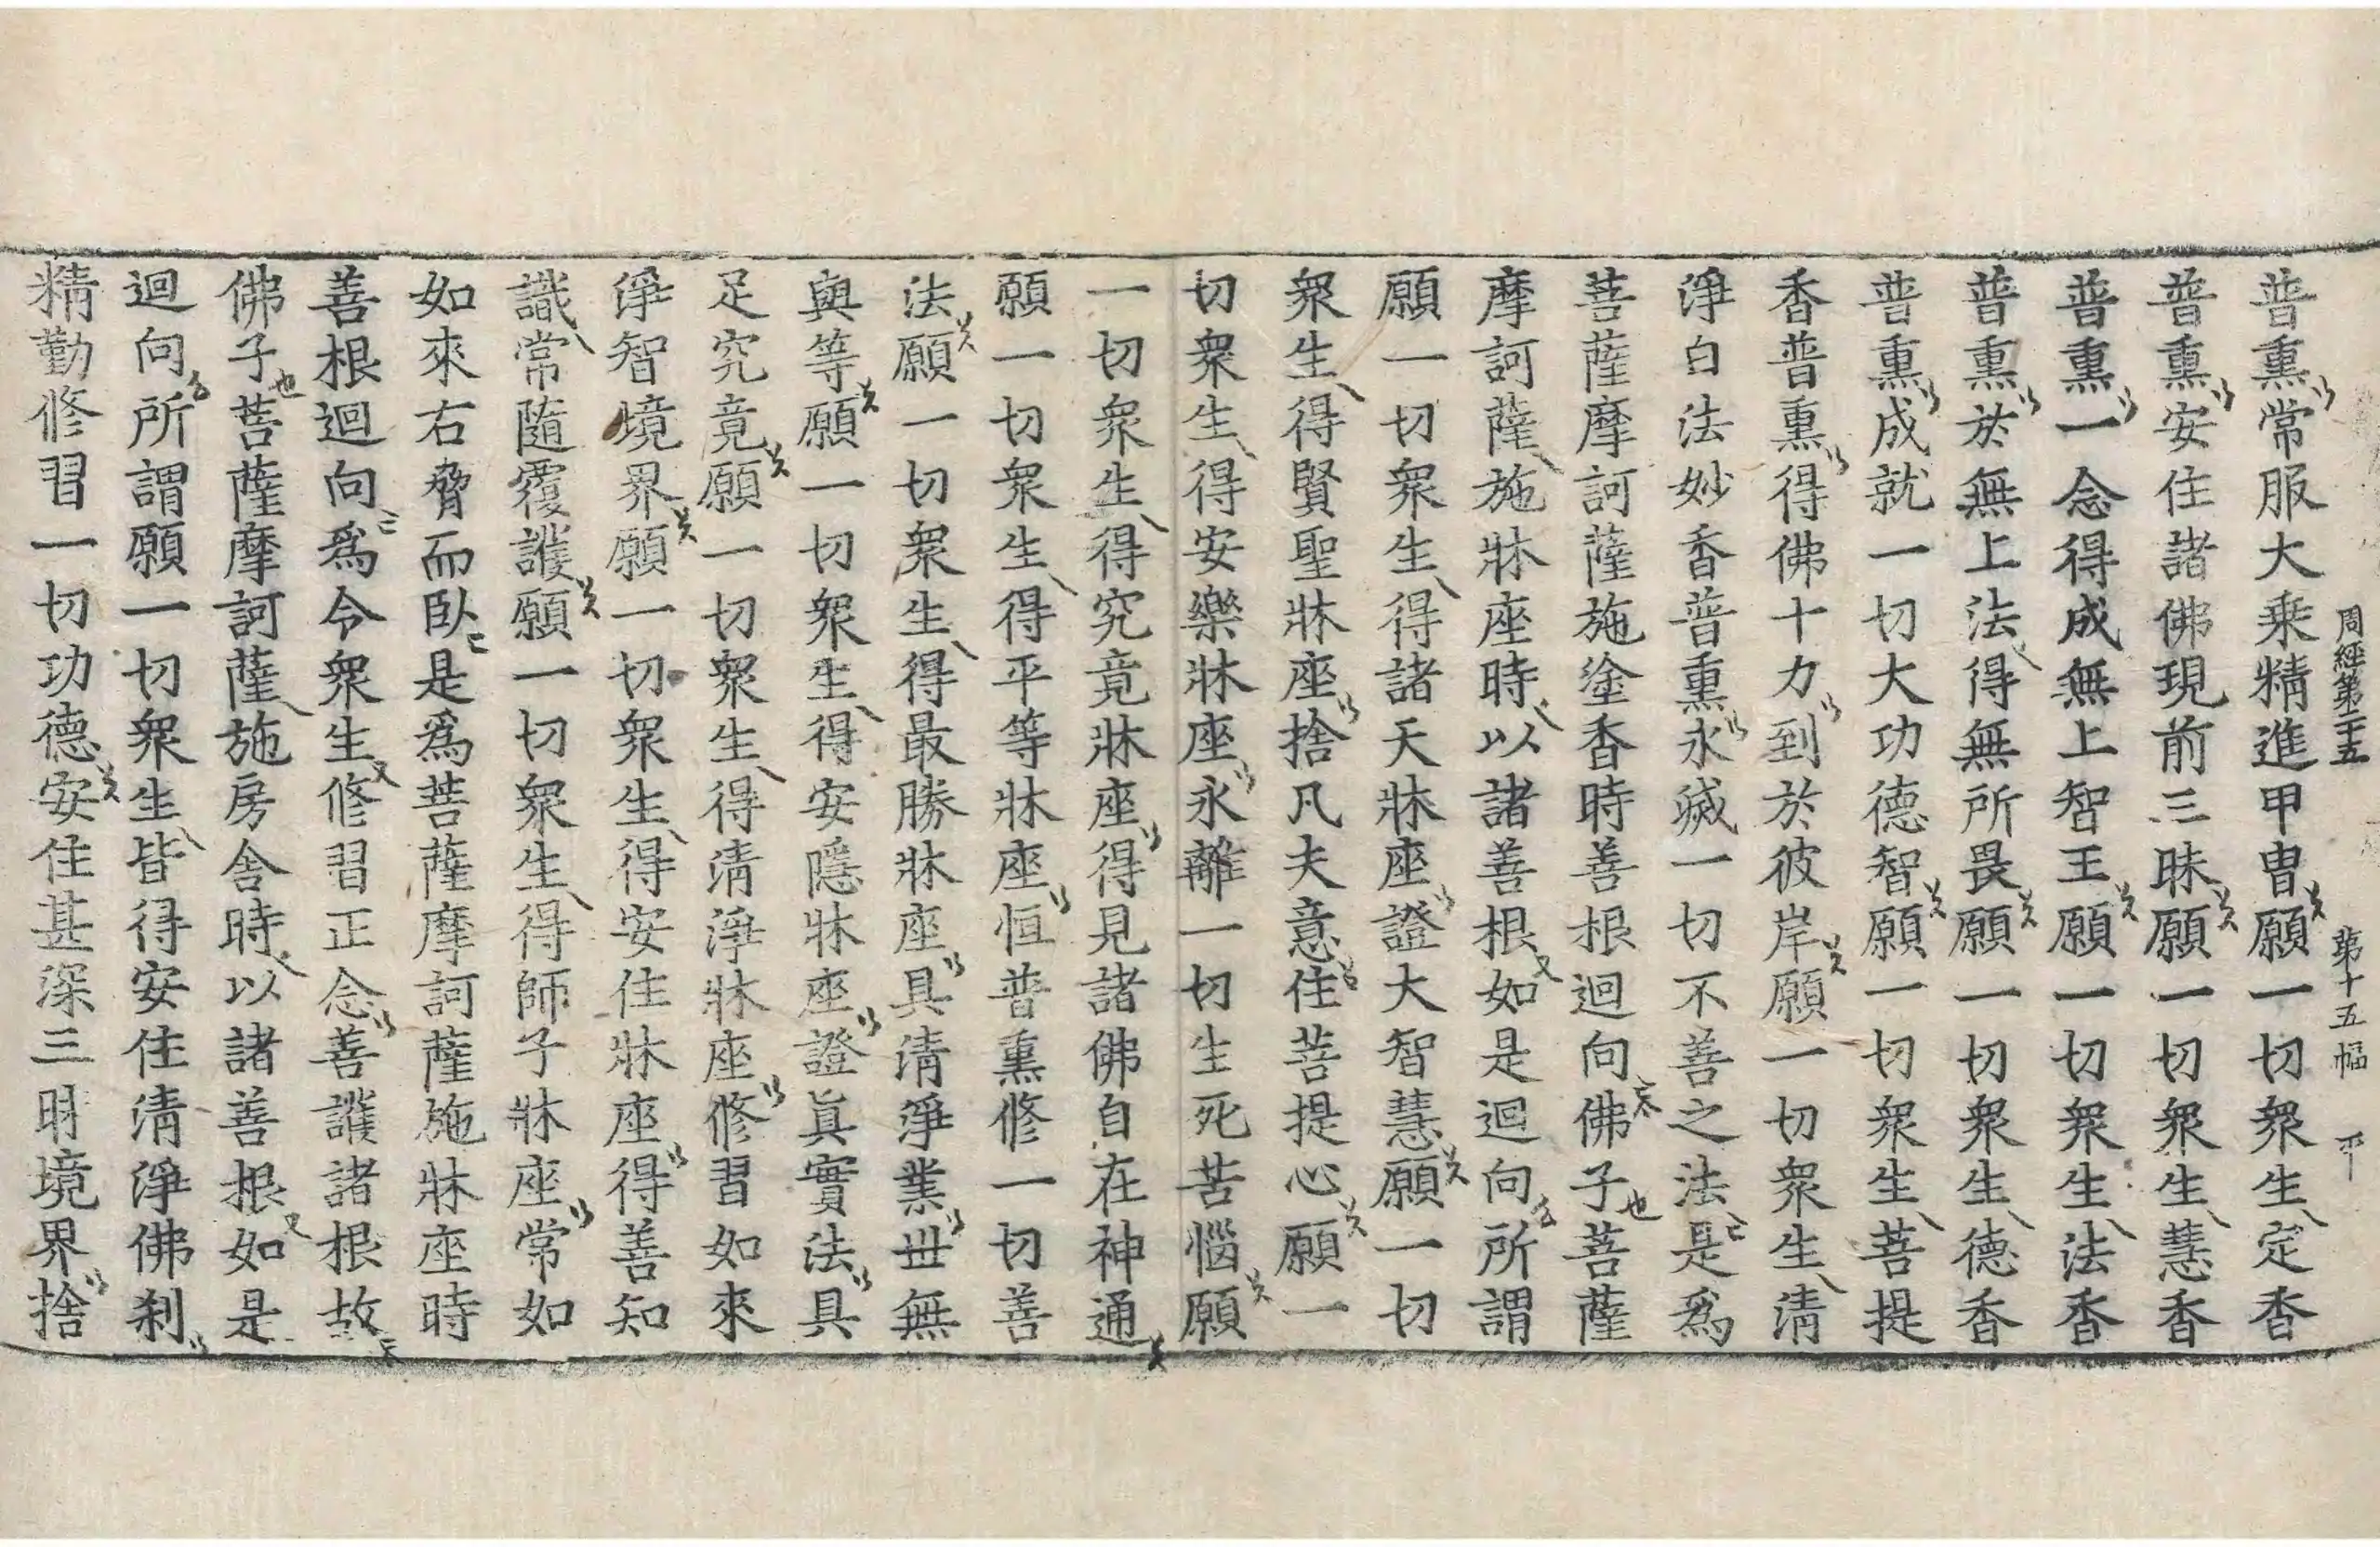 周經第二十五 第十五幅
普熏常服大乘精進甲冑願一切衆生定香
普熏安住諸佛現前三昧願一切衆生慧香
普熏一念得成無上智王願一切衆生法香
普熏於無上法得無所畏願一切衆生德香
普熏成就一切大功德智願一切衆生菩提
香普熏得佛十力到於彼岸願一切衆生清
淨白法妙香普熏永滅一切不善之法是爲
菩薩摩訶薩施塗香時善根迴向佛子菩薩
摩訶薩施牀座時以諸善根如是迴向所謂
願一切衆生得諸天牀座證大智慧願一切
衆生得賢聖牀座捨凡夫意住菩提心願一
切衆生得安樂牀座永離一切生死苦惱願
一切衆生得究竟牀座得見諸佛自在神通
願一切衆生得平等牀座恒普熏修一切善
法願一切衆生得最勝牀座具清淨業世無
與等願一切衆生得安隱牀座證眞實法具
足究竟願一切衆生得清淨牀座修習如來
淨智境界願一切衆生得安住牀座得善知
識常隨覆護願一切衆生得師子牀座常如
如來右脅而臥是爲菩薩摩訶薩施牀座時
善根迴向爲令衆生修習正念善護諸根故
佛子菩薩摩訶薩施房舍時以諸善根如是
迴向所謂願一切衆生皆得安住清淨佛刹
精勤修習一切功德安住甚深三昧境界捨